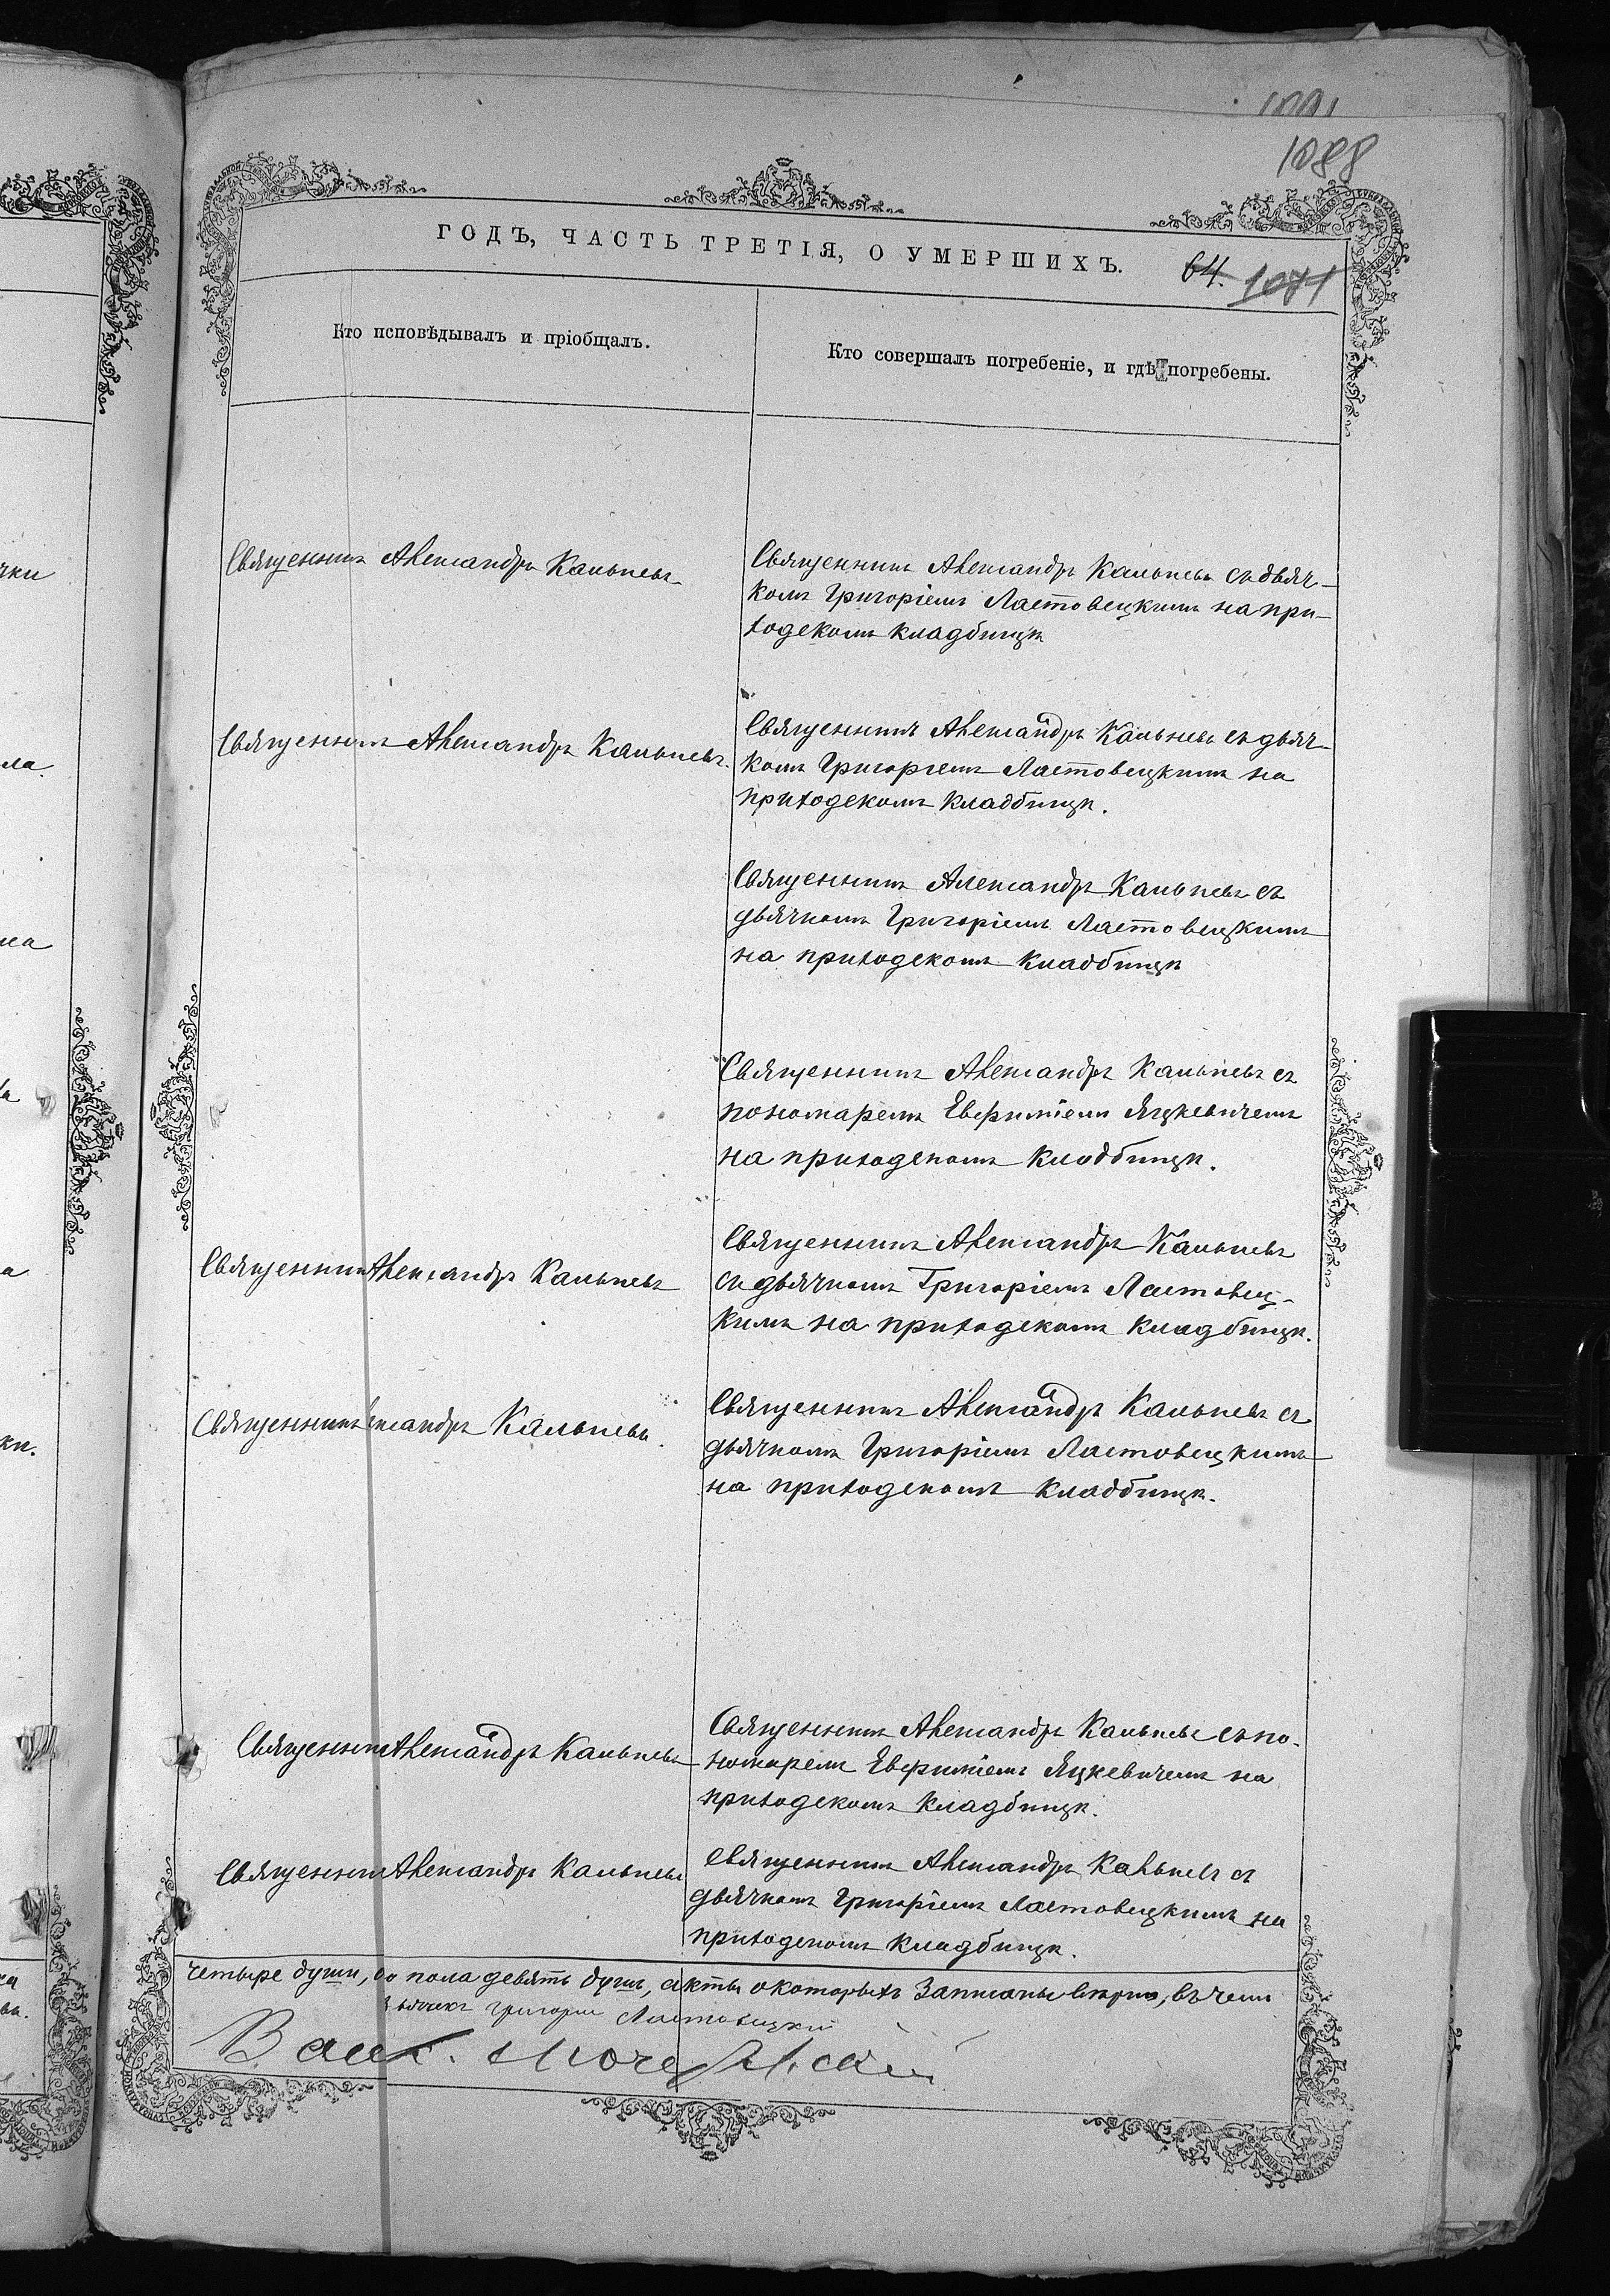 1088
ГОДЪ, ЧАСТЬ ТРЕТІЯ, О УМЕРШИХЪ.
64. 1081
Кто исповѣдывалъ и пріобщалъ.
Кто совершалъ погребеніе, и гдѣ погребены.
Священникъ Александръ
Священникъ Александръ съ дьяч-
комъ Григоріемъ Ластовецкимъ на при-
ходскомъ кладбищѣ
Священникъ Александръ
Священникъ Александръ съ дьяч-
комъ Григоріемъ Ластовецкимъ на
приходскомъ кладбищѣ.
Священникъ Александръ съ
дьячкомъ Григоріемъ Ластовецкимъ
на приходскомъ кладбищѣ
Священникъ Александръ съ
пономаремъ Евфиміемъ Яцкевичемъ
на приходскомъ кладбищѣ.
Священникъ Александръ
Священникъ Александръ
съ дьячкомъ Григоріемъ Ластовец-
кимъ на приходскомъ кладбищѣ.
Священникъ
Священникъ Александръ съ
дьячкомъ Григоріемъ Ластовецкимъ
на приходскомъ кладбищѣ.
Священникъ Александръ
Священникъ Александръ съ по-
номаремъ Евфиміемъ Яцкевичемъ на
приходскомъ кладбищѣ.
Священникъ Александръ
Священникъ Александръ съ
дьячкомъ Григоріемъ Ластовецкимъ на
приходскомъ кладбищѣ.
четыре души, пола девять душъ, акты о которыхъ записаны вѣрно, въ чемъ
Дьячекъ Григорій Ластовецкій